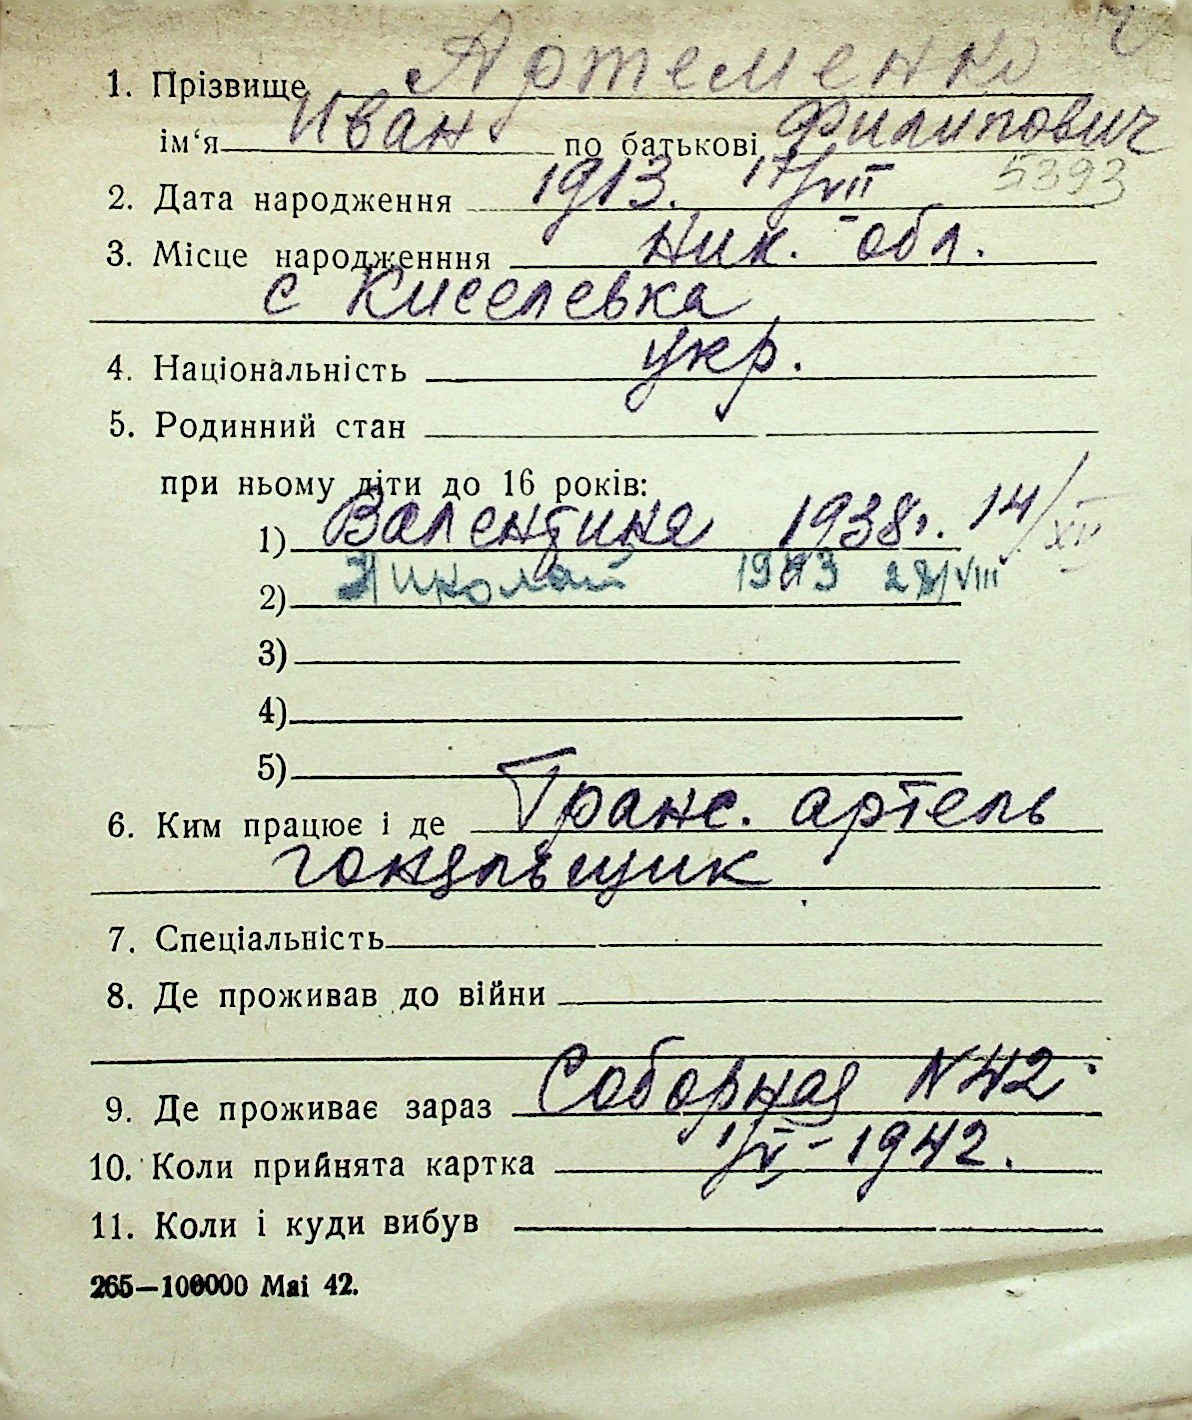 1. Прізвище Артеменко
ім‘я Иван по батькові Филипович
5393
2. Дата народження 1913. 17/VII
3. Місце народженння Ник. обл.
с Киселевка
4. Національність укр.
5. Родинний стан
при ньому діти до 16 років:
1) Валентина 1938г. 14/XII
2) Николай 1943 28/VIII
3)
4)
5)
6. Ким працює і де Транс. артель
7. Спеціальність
8. Де проживав до війни
9. Де проживає зараз Соборная N 42.
10. Коли прийнята картка 1/V - 1942.
11. Коли і куди вибув
265—100000 Mai 42.